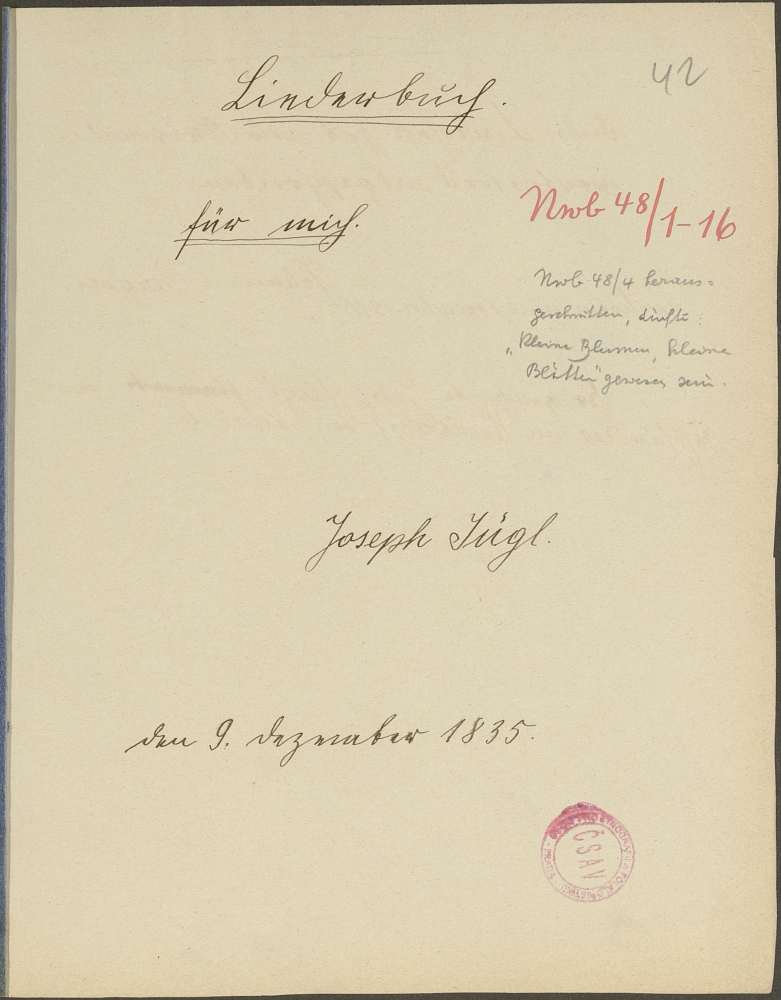 42
Liederbuch.
für mich.
Nwb 48/1-16
Nwb 48/4 heraus-
geschnitten, dürfte:
„Kleine Blumen, kleine
Blätter" gewesen sein.
Joseph Jügl.
den 9. Dezember 1835.
ČSAV